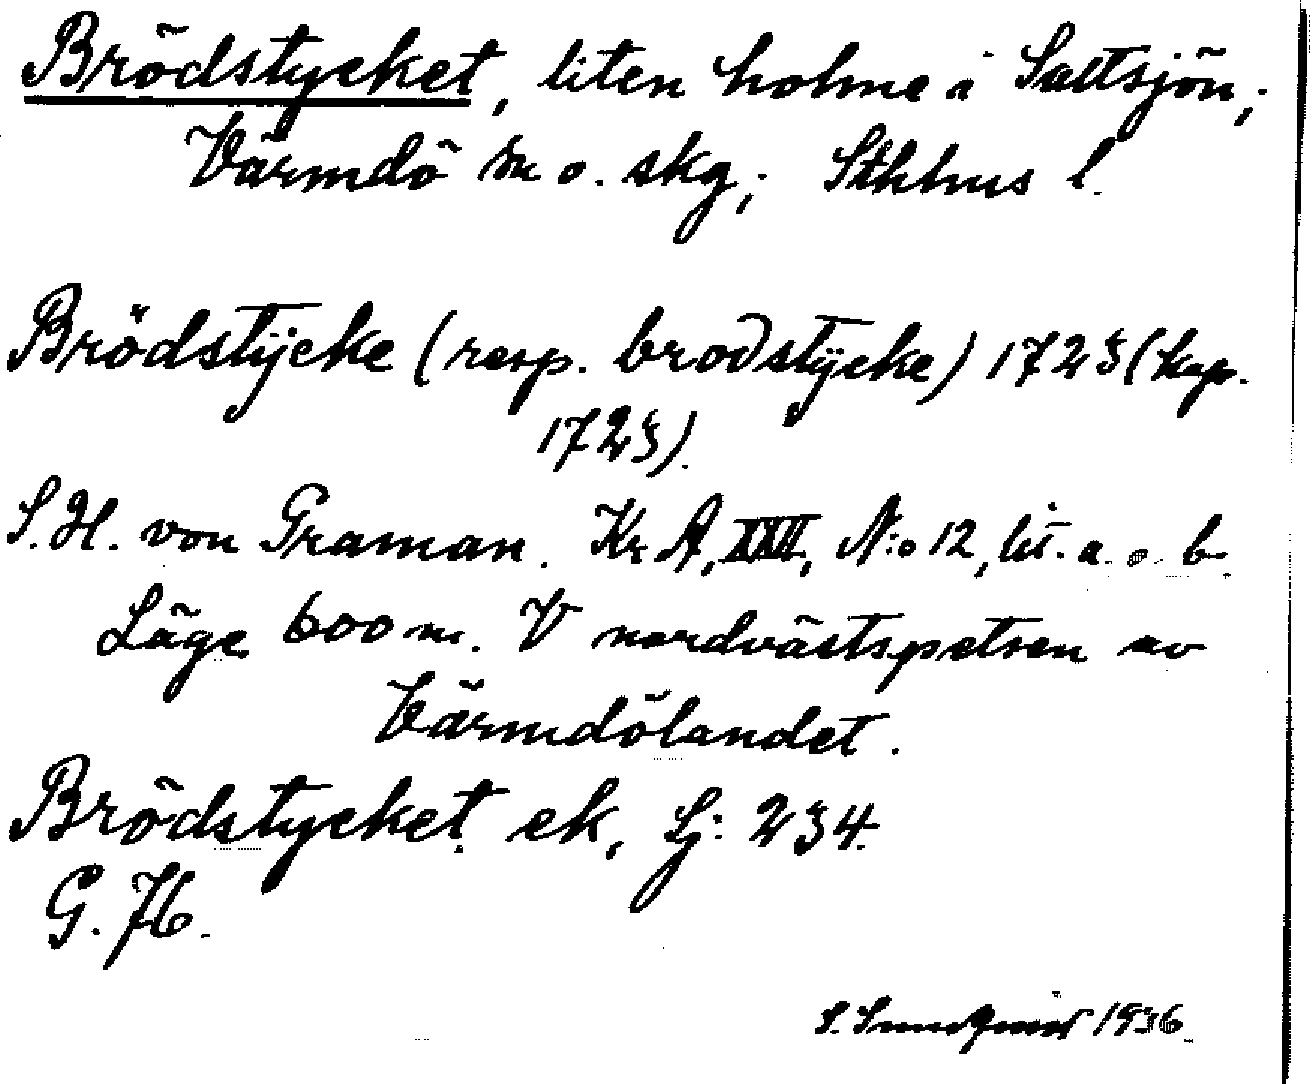 Brödstycket, liten holme i Saltsjön;
Värmdö sn o. skg; Sthlms l.
Brödstÿcke (resp. brodstÿcke) 1723 (kop.
1723).
S.H. von Graman. Kr A, XXII, N:o 12, lit. a. o. b.
Läge 600 m. V nordvästspetsen av
Värmdölandet.
Brödstycket ek, Lj: 234.
G. 76.
S. Sundquist 1936.